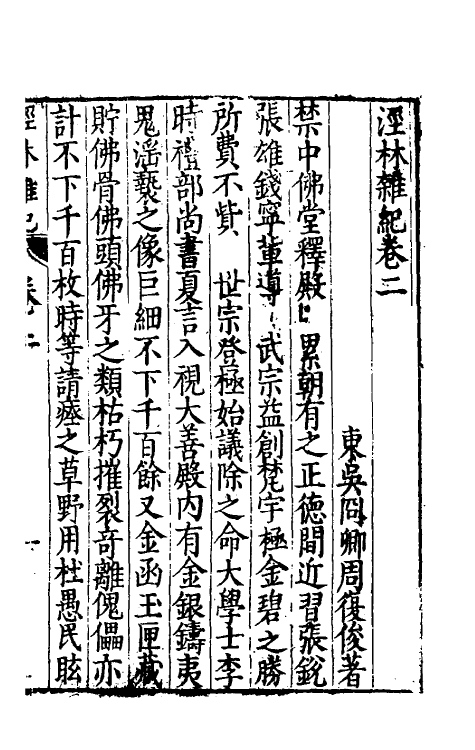 涇林雜紀卷二
東吳冏卿周復俊著
禁中佛堂釋殿 累朝有之正德間近習張銳
張雄錢寧輩導 武宗益創梵宇極金碧之勝
所費不貲 世宗登極始議除之命大學士李
時禮部尚書夏言入視大善殿內有金銀鑄夷
鬼滛褻之像巨細不下千百餘又金函玉匣藏
貯佛骨佛頭佛牙之類枯朽摧裂奇離傀儡亦
計不下千百枚時等請瘞之草野用杜愚民眩
涇林雜紀 卷二 一